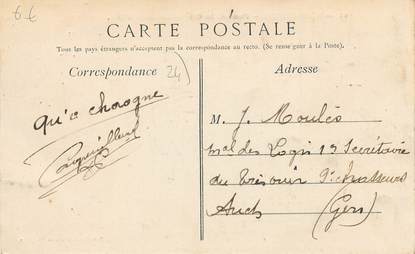 6.€
CARTE POSTALE
Tous les pays étrangers n'acceptent pas la correspondance au recto. (Se rense gner à la Poste).
Correspondance
24
Adresse
qu'à charogne
M. J. Moulés
mal des Logis 1er Secrétaire
du Trésorier 9e chasseurs
Auch (Gers)